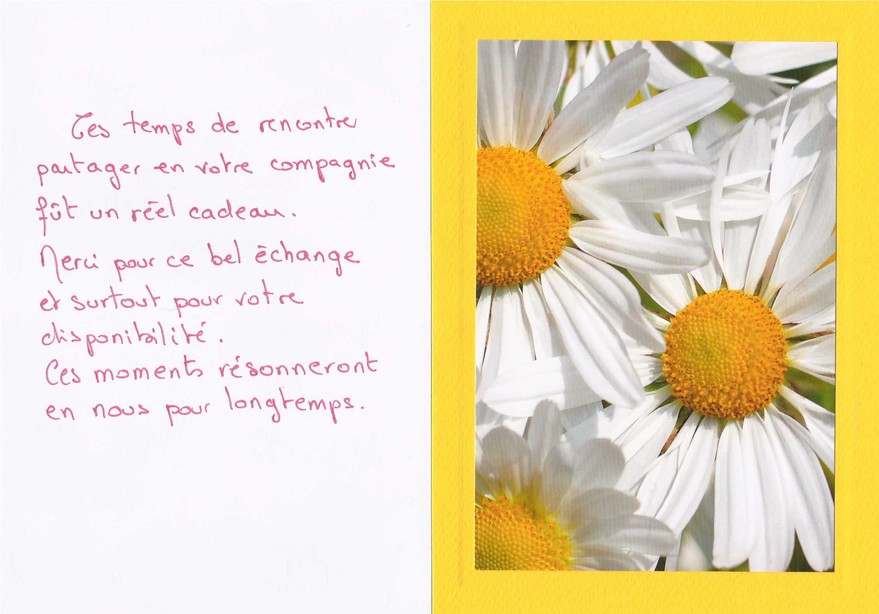 Ces temps de rencontre
partager en votre compagnie
fût un réel cadeau.
Merci pour ce bel échange
et surtout pour votre
disponibilité.
Ces moments résonneront
en nous pour longtemps.